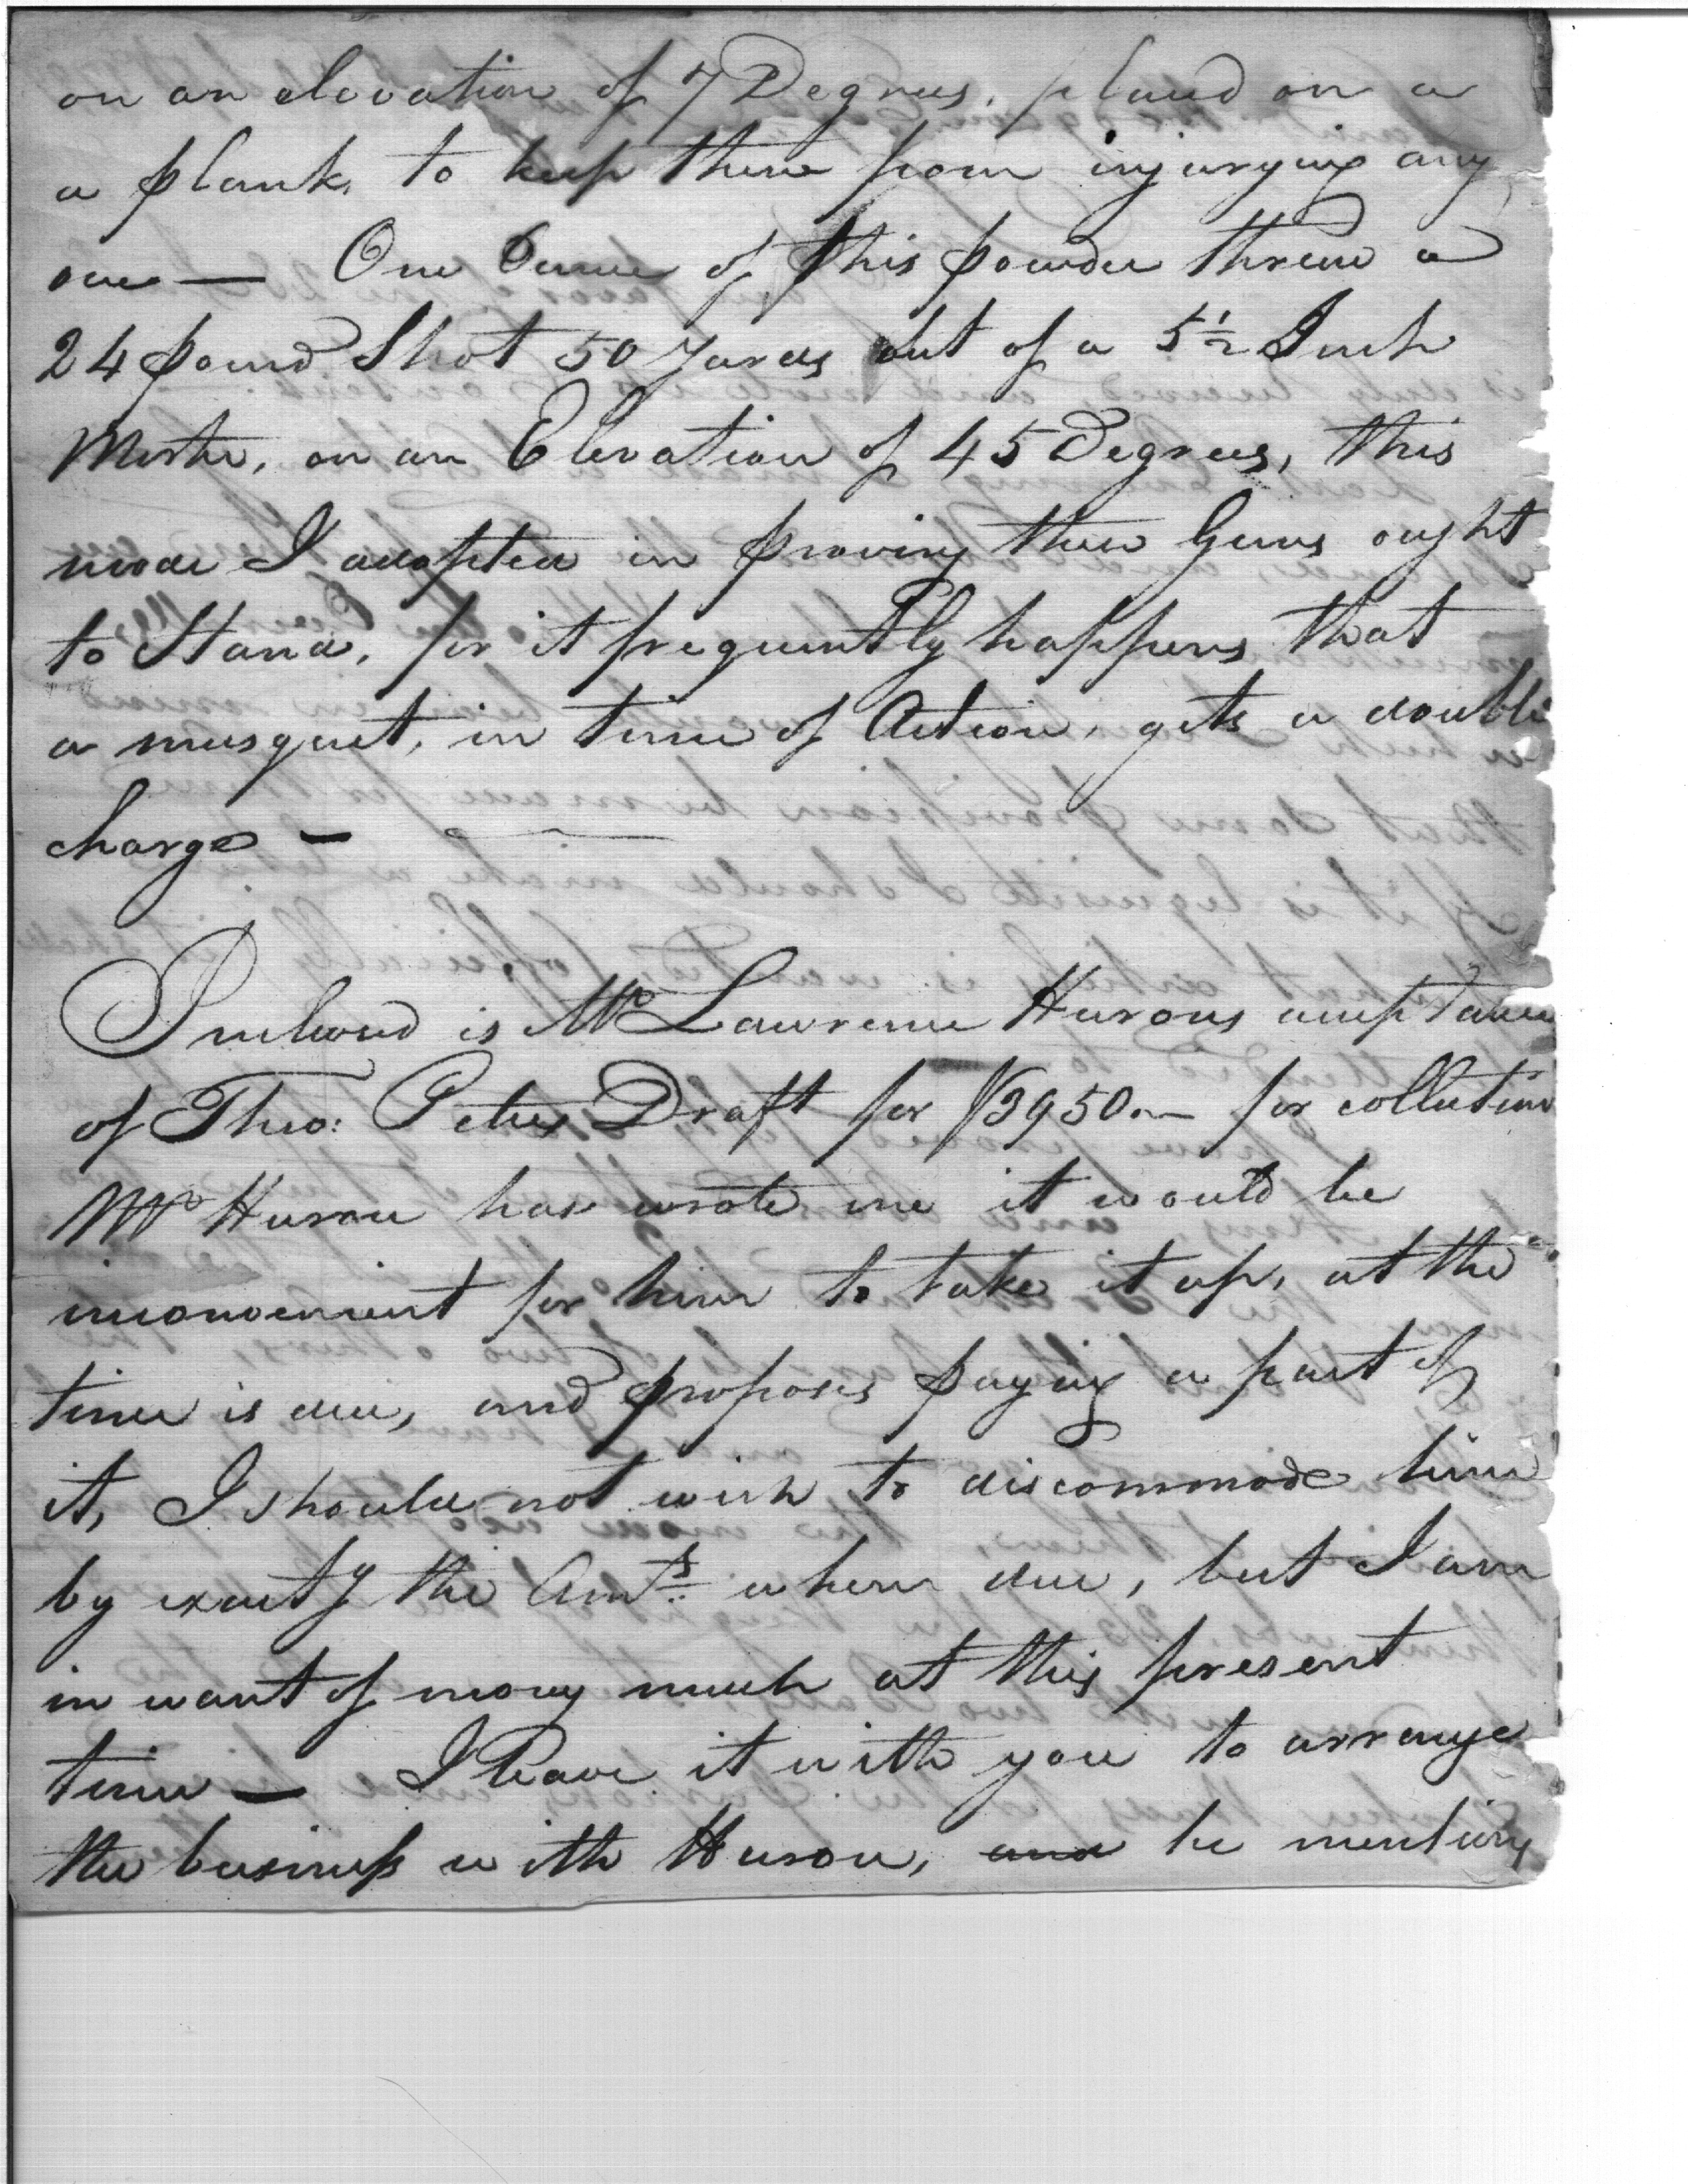 on an elevation of 7 Degrees, placed on a
a plank, to keep them from injurying any
one — One Ounce of this powder threw a
24 pound Shot 50 Yards out of a 5½ Inch
Morter, on an Elevation of 45 Degrees, this
mode I adopted in proving these Guns ought
to Stand, for it frequently happens that
a musquet, in time of Action, gets a double
charge —
Inclosed is Mr Lawrence Hurons acceptance
of Theo: Peters Draft for $3950.— for collection
Mr Huron has wrote me it would be
inconvenient for him to take it up, at the
time is due, and proposes paying a part of
it, I should not wish to discommode him
by exactg the Amts when due, but I am
in want of mony much at this present
time — I leave it with you to arrange
the business with Huron, and he mentions